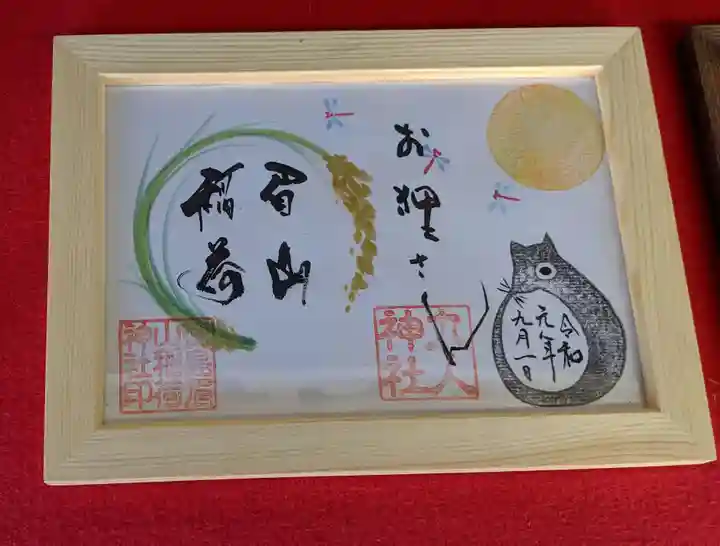 お狸さん
令和
元年
九月一日
神社
眉山
稲荷
山稲荷
神社印